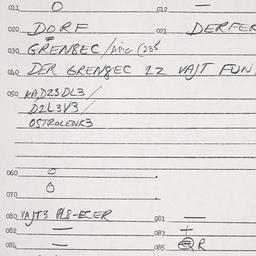 011 O 012 —
020 DORF 021 DERFER
030 GRENSEC / Apic (235
040 DER GRENGEC 12 VAJT FUN.
050 KA,D2S3DL3 /
D2L3V3 /
OSTROLENK3
060 O
070 O
080 VAJT3 PLS-ECER 081 —
082 — 083 +
084 — 085 R